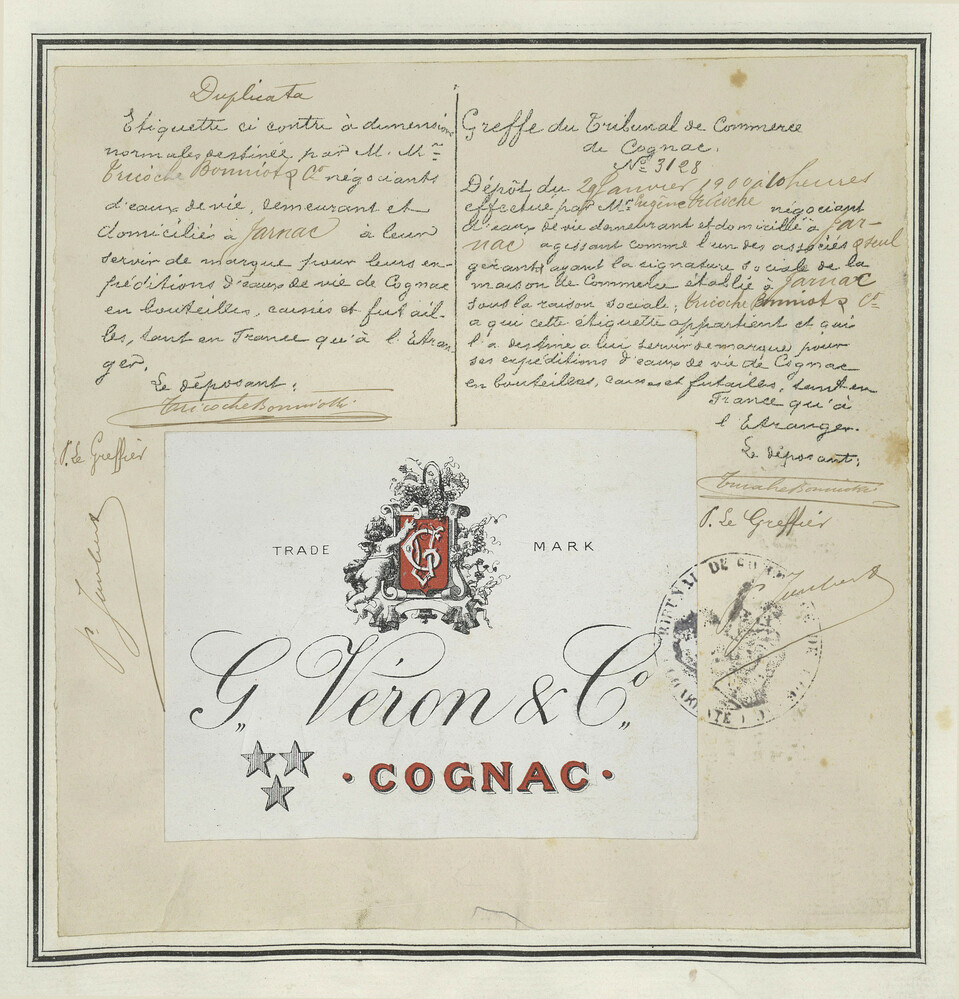 Duplicata
Etiquette ci contre à dimensions
normales destinée par M. Mrs
Tricoche Bonniot & Cie négociants
d'eaux de vie, demeurant et
domiciliés à Jarnac à leur
servir de marque pour leurs ex-
péditions d'eaux de vie de Cognac
en bouteilles, caisses et futail-
les, tant en France qu'à l'Etran-
ger.
Le déposant,
Tricoche Bonniot &
P. Le Greffier
Greffe du Tribunal de Commerce
de Cognac.
No 3128
Dépôt du 29 Janvier 1900 à 10 heures
effectué par Mr Eugène Tricoche négociant
d'eaux de vie demeurant et domicilié à Jar-
nac agissant comme l'un des associés & seul
gérant ayant la signature sociale de la
maison de Commerce établie à Jarnac
sous la raison sociale, Tricoche Bonniot & Cie
a qui cette étiquette appartient et qui
l'a destine a lui servir de marque pour
ses expéditions d'eaux de vie de Cognac
en bouteilles, caisses et futailles, tant en
France qu'à
l'Etranger.
Le déposant,
Tricoche Bonniot &
P. Le Greffier
TRADE MARK
G. Véron & Co
COGNAC
TRIBUNAL DE COMMERCE